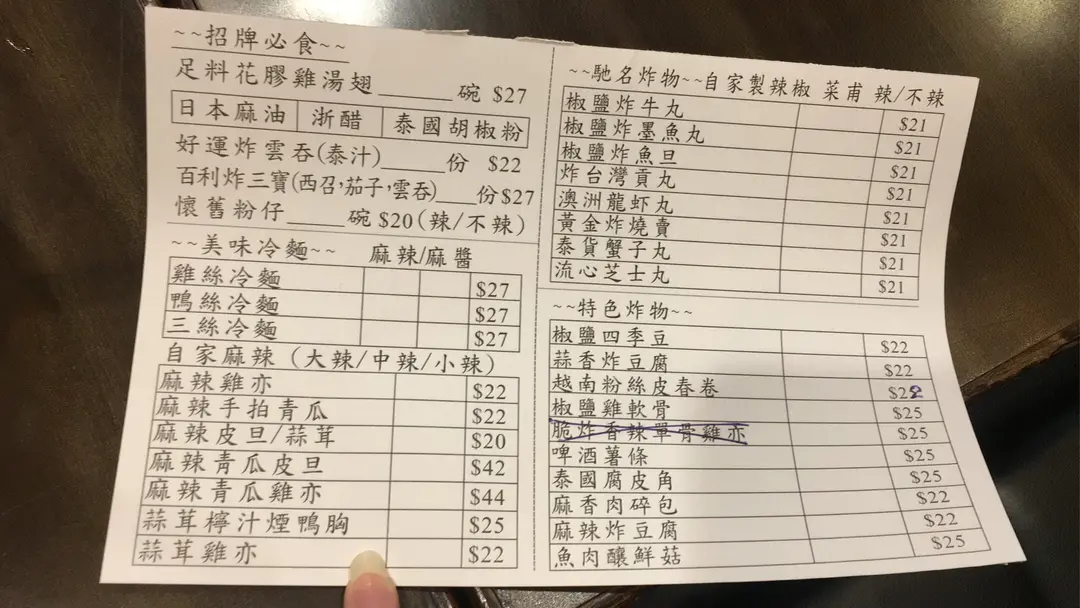 ~~招牌必食~~
足料花膠雞湯翅______碗 $27
日本麻油 浙醋 泰國胡椒粉
好運炸雲吞(泰汁)______份 $22
百利炸三寶(西召,茄子,雲吞)____份$27
懷舊粉仔______碗 $20(辣/不辣)
~~美味冷麵~~ 麻辣/麻醬
雞絲冷麵 $27
鴨絲冷麵 $27
三絲冷麵 $27
自家麻辣（大辣/中辣/小辣）
麻辣雞亦 $22
麻辣手拍青瓜 $22
麻辣皮旦/蒜茸 $20
麻辣青瓜皮旦 $42
麻辣青瓜雞亦 $44
蒜茸檸汁煙鴨胸 $25
蒜茸雞亦 $22
~~馳名炸物~~自家製辣椒 菜甫 辣/不辣
椒鹽炸牛丸 $21
椒鹽炸墨魚丸 $21
椒鹽炸魚旦 $21
炸台灣貢丸 $21
澳洲龍虾丸 $21
黃金炸燒賣 $21
泰貨蟹子丸 $21
流心芝士丸 $21
~~特色炸物~~
椒鹽四季豆 $22
蒜香炸豆腐 $22
越南粉絲皮春卷 $22
椒鹽雞軟骨 $25
脆炸香辣單骨雞亦 $25
啤酒薯條 $25
泰國腐皮角 $25
麻香肉碎包 $22
麻辣炸豆腐 $22
魚肉釀鮮菇 $25